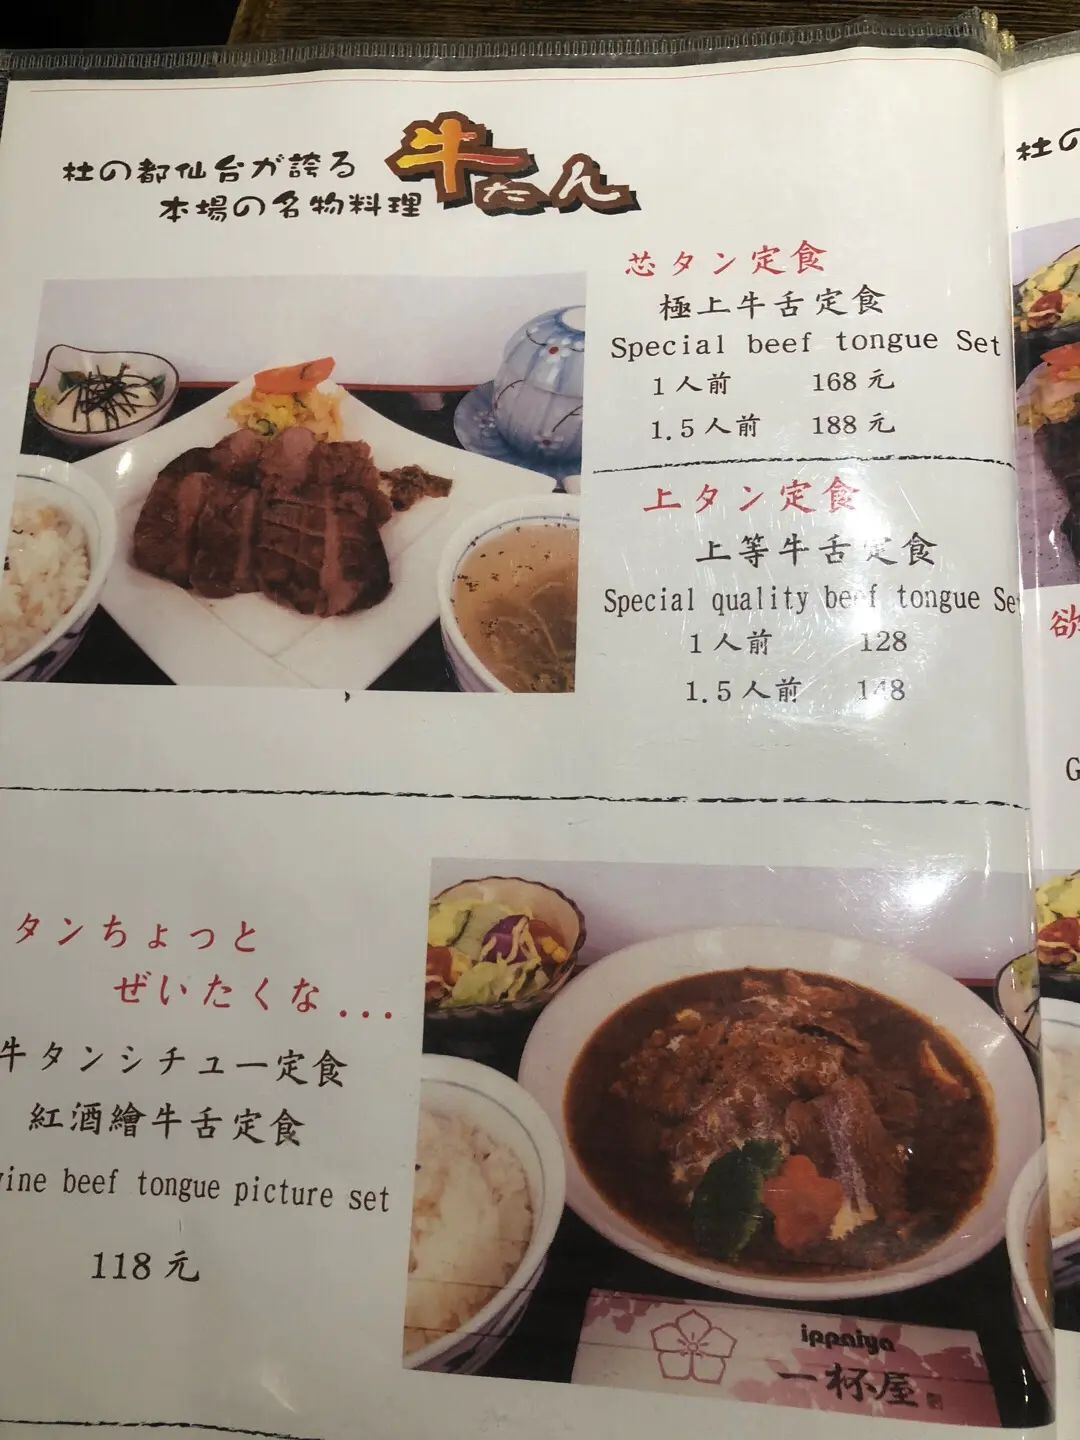 杜の都仙台が誇る
本場の名物料理
牛たん
芯タン定食
極上牛舌定食
Special beef tongue Set
1人前 168元
1.5人前 188元
上タン定食
上等牛舌定食
Special quality beef tongue Se
1人前 128
1.5人前 148
タンちょっと
ぜいたくな...
牛タンシチュー定食
紅酒繪牛舌定食
wine beef tongue picture set
118元
ippaiya
一杯屋
杜の
欲
G